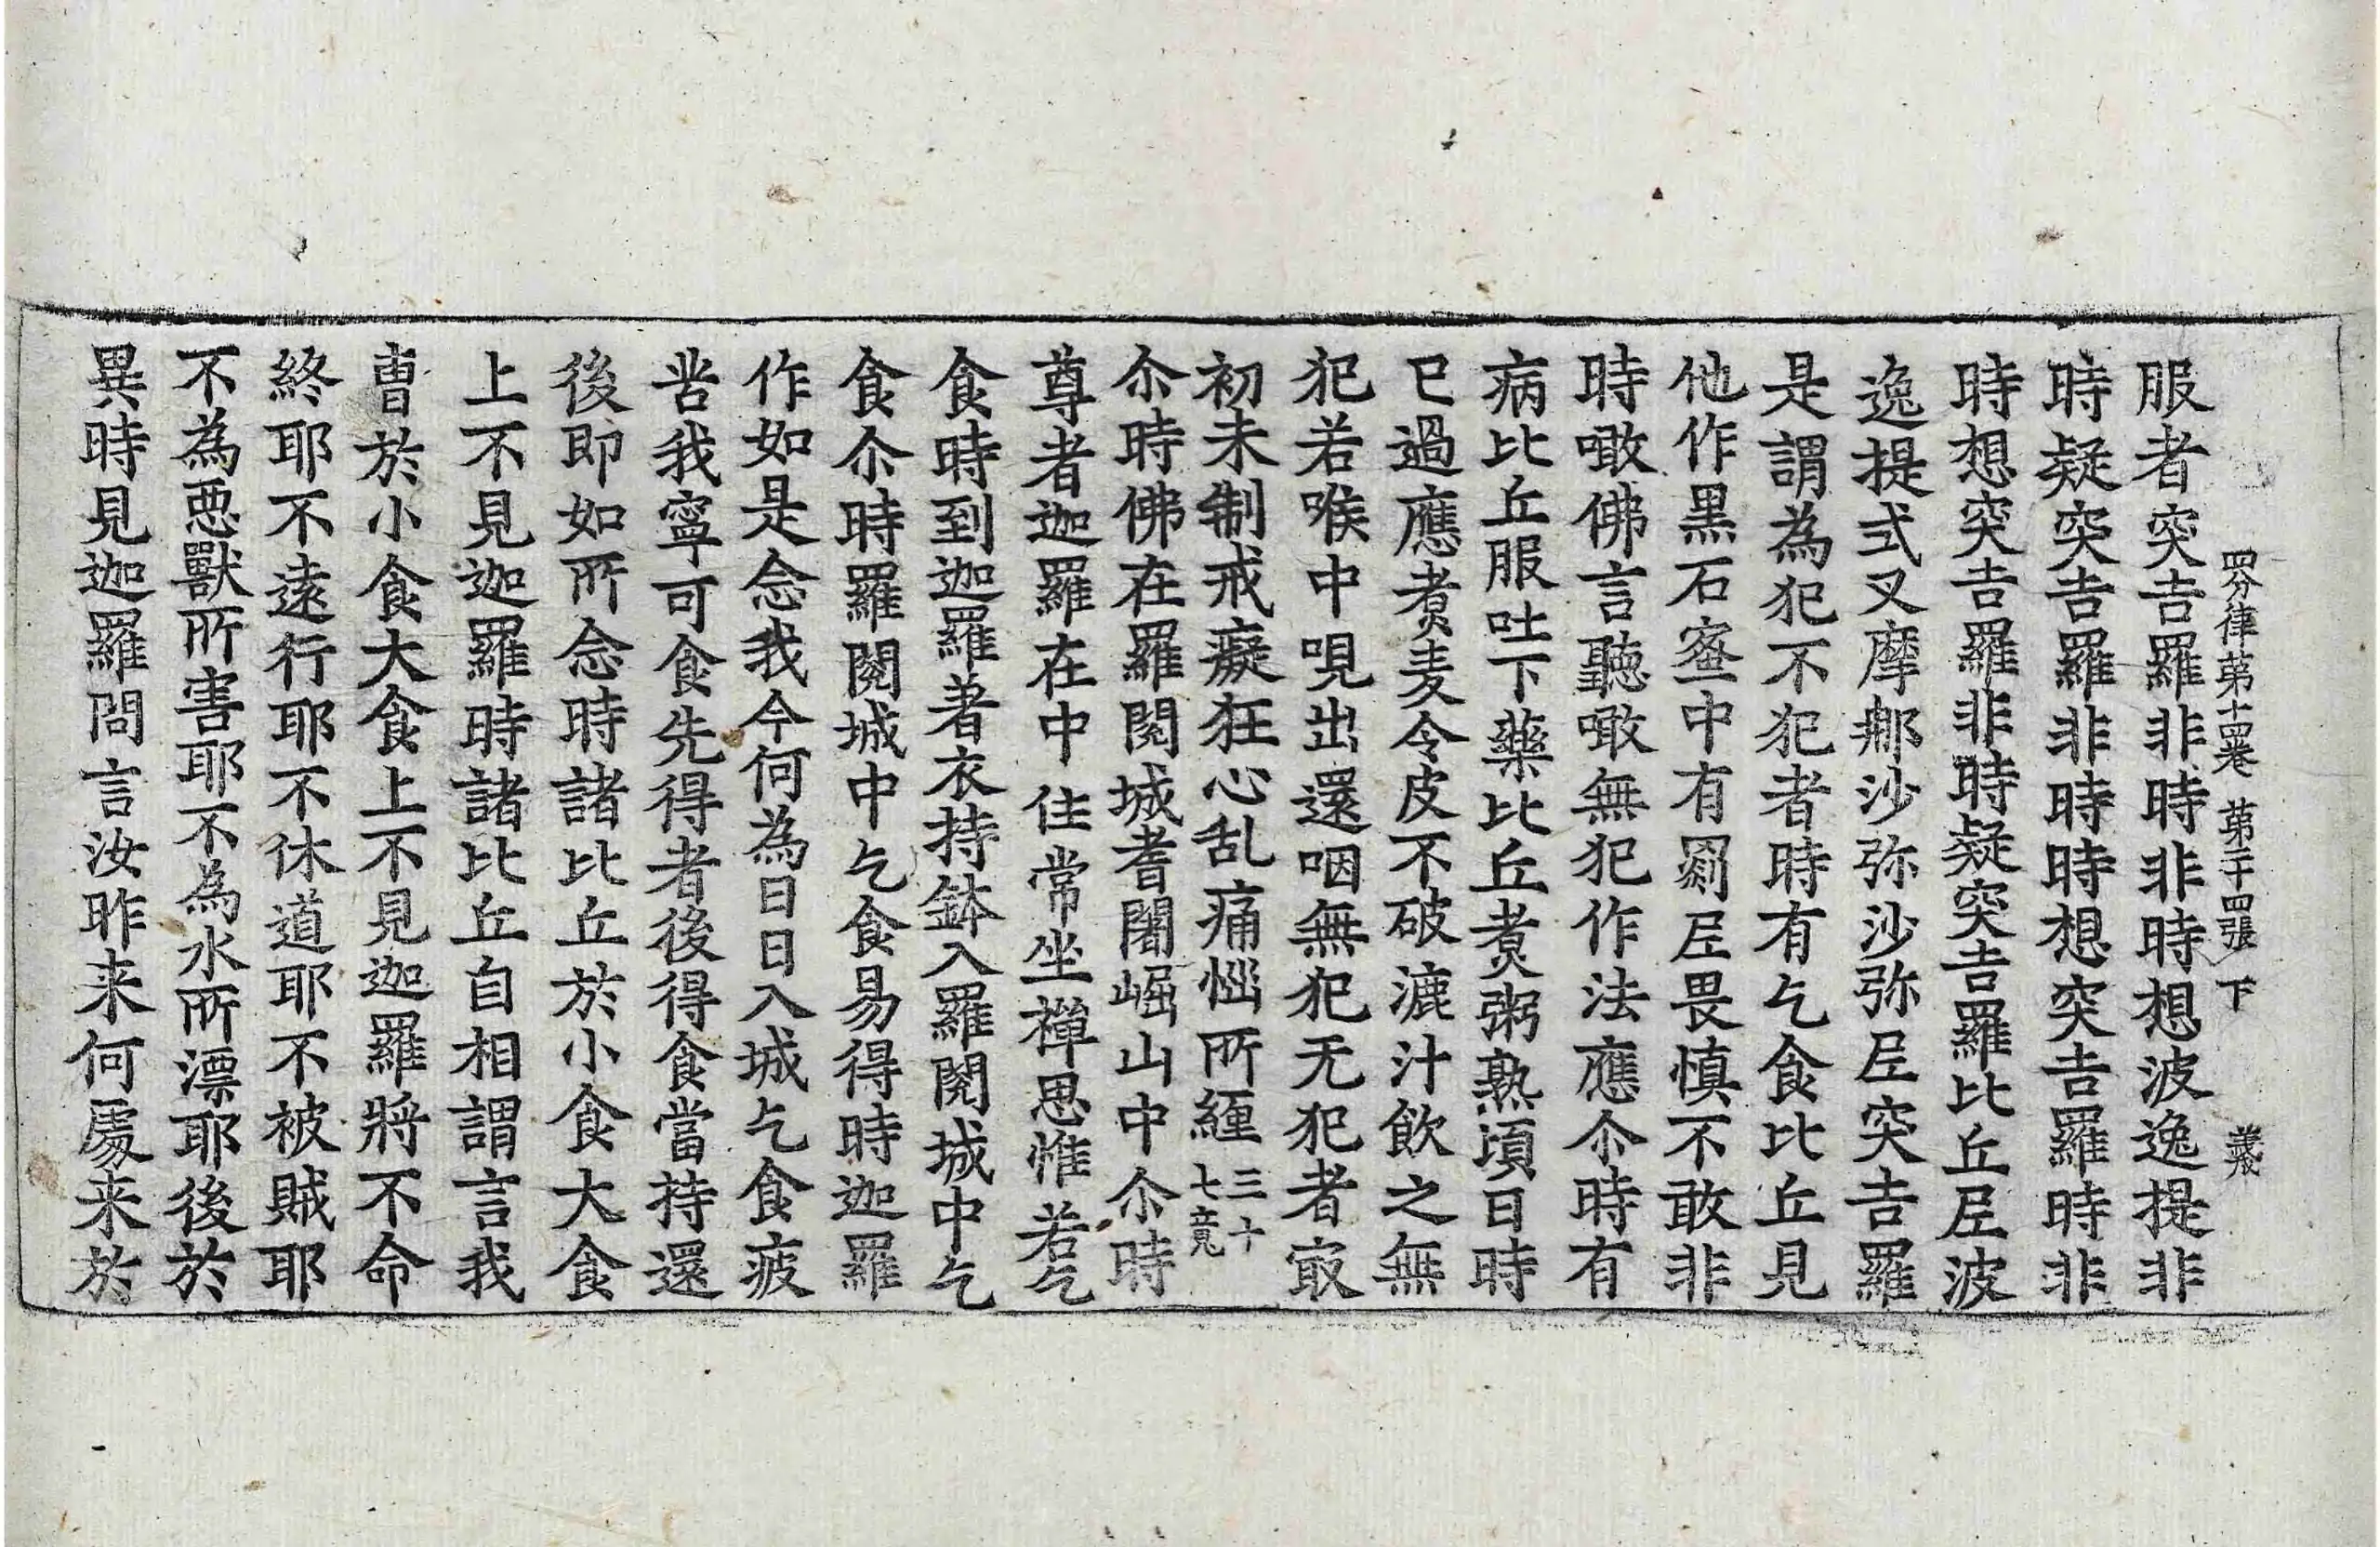 四分律第十四卷 第二十四張 下 義
服者突吉羅非時非時想波逸提非
時疑突吉羅非時時想突吉羅時非
時想突吉羅非時疑突吉羅比丘尼波
逸提式叉摩那沙弥沙弥尼突吉羅
是謂為犯不犯者時有乞食比丘見
他作黒石蜜中有罽尼畏慎不敢非
時噉佛言聽噉無犯作法應尒時有
病比丘服吐下藥比丘煮粥熟頃日時
已過應煮麦令皮不破漉汁飲之無
犯若喉中哯出還咽無犯无犯者㝡
初未制戒癡狂心乱痛惱所纒三十七竟
尒時佛在羅閱城耆闍崛山中尒時
尊者迦羅在中住常坐禪思惟若乞
食時到迦羅著衣持鉢入羅閱城中乞
食尒時羅閱城中乞食易得時迦羅
作如是念我今何為日日入城乞食疲
苦我寧可食先得者後得食當持還
後即如所念時諸比丘於小食大食
上不見迦羅時諸比丘自相謂言我
曹於小食大食上不見迦羅將不命
終耶不遠行耶不休道耶不被賊耶
不為惡獸所害耶不為水所漂耶後於
異時見迦羅問言汝昨来何處来於